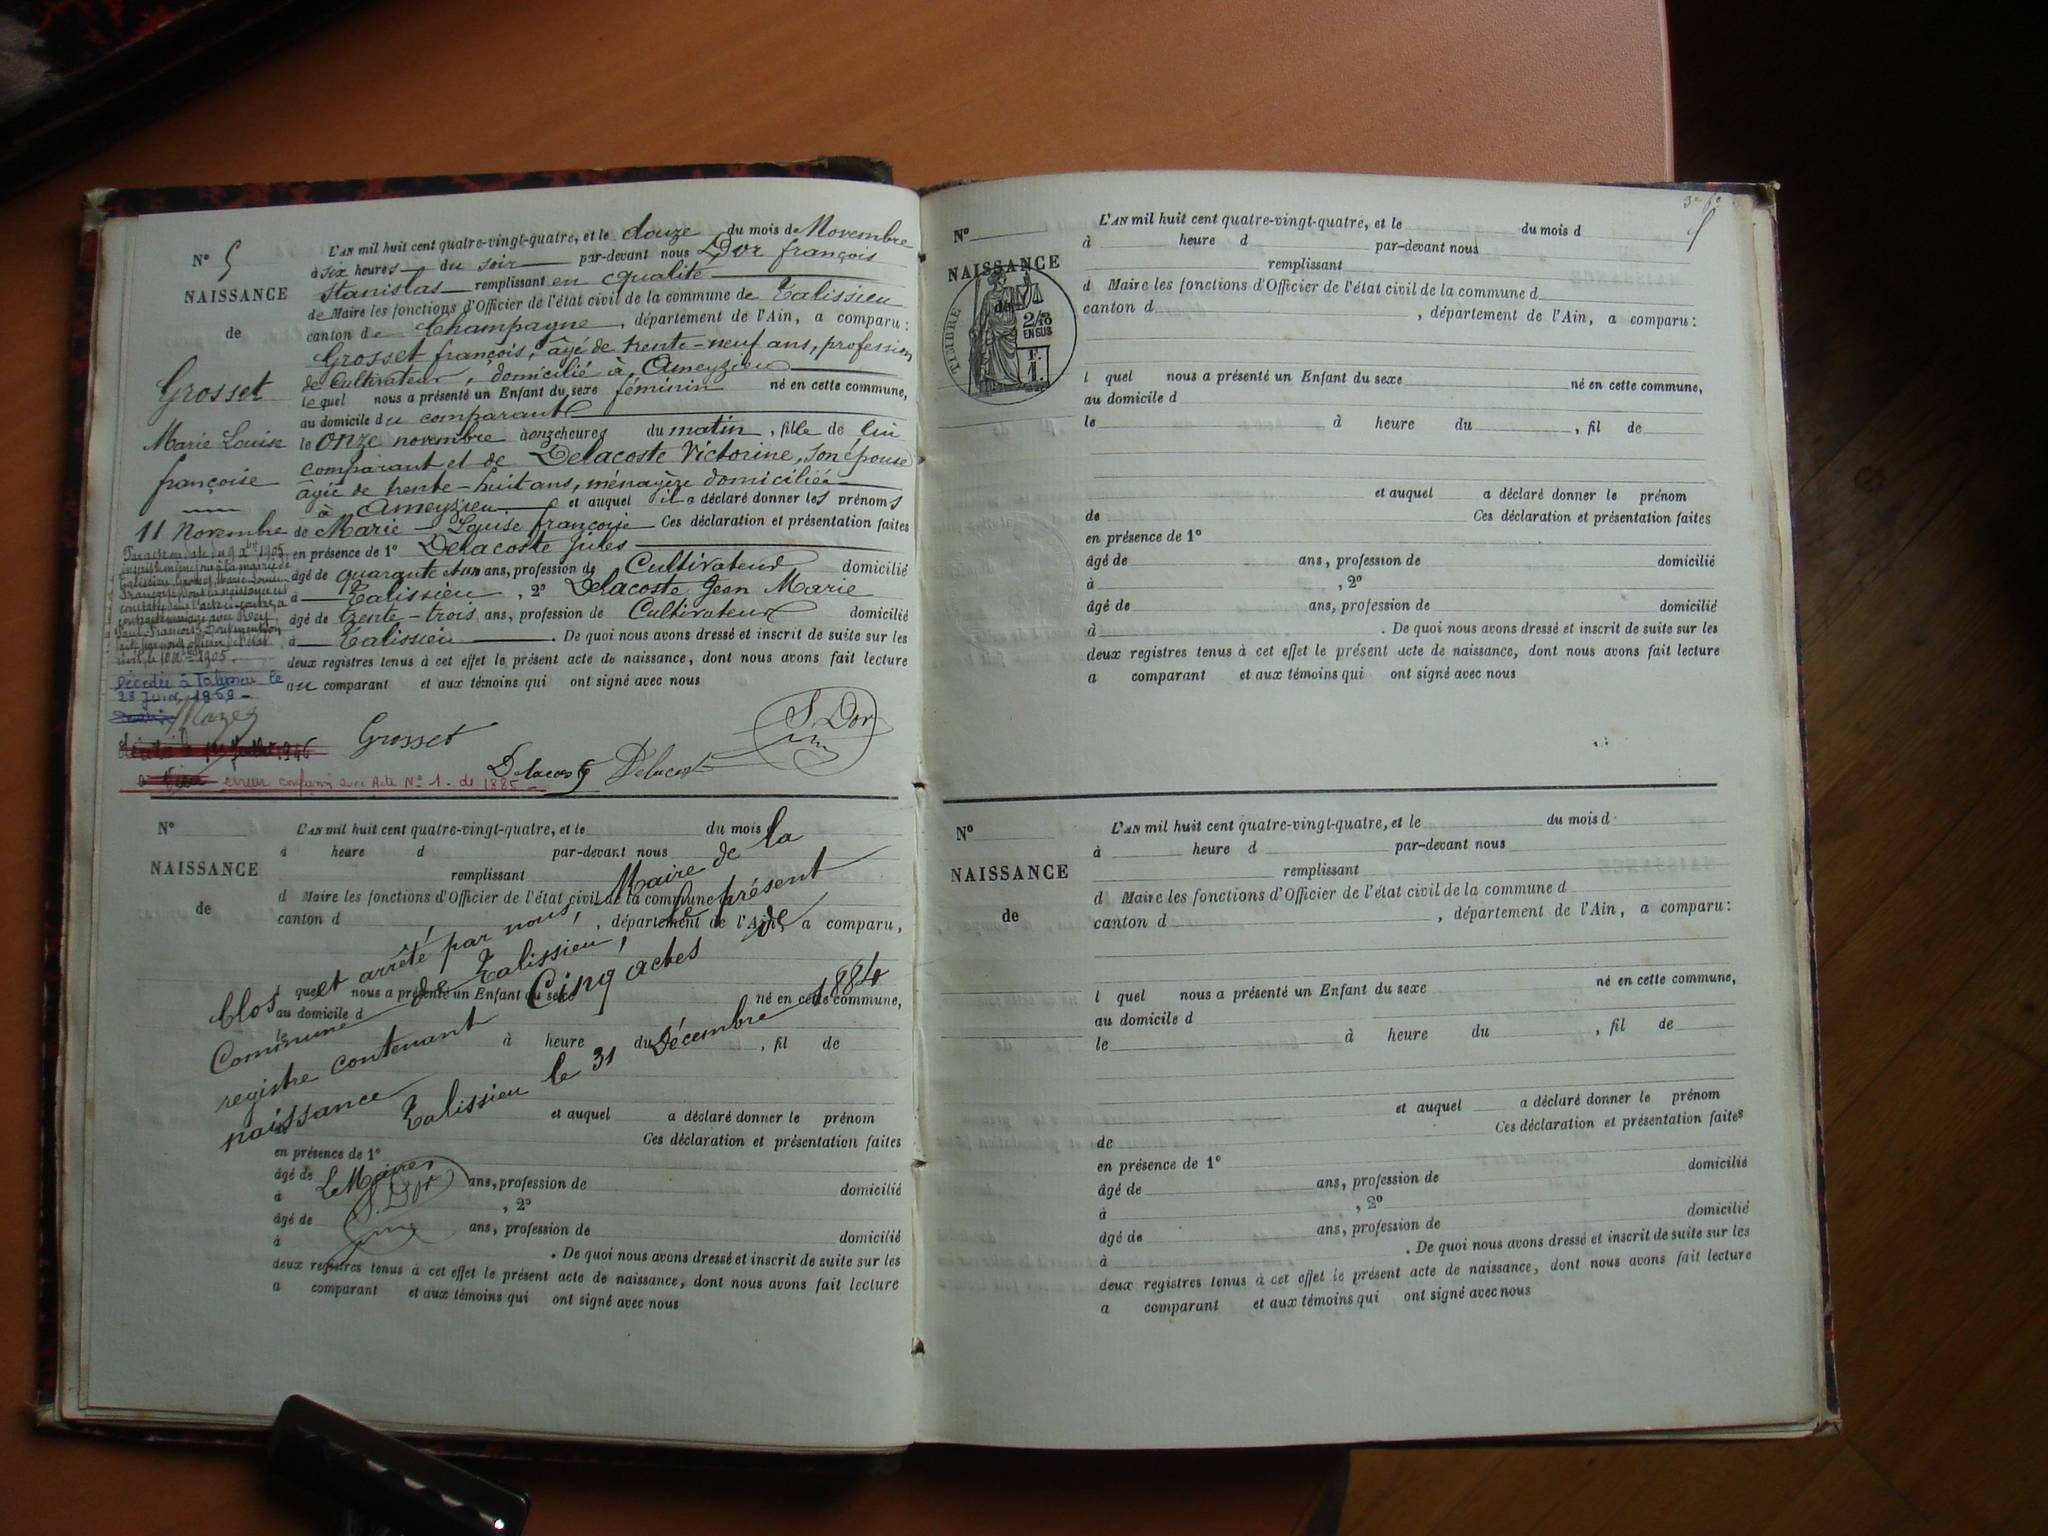 N° 5
NAISSANCE
de
Grosset
Marie Louise
françoise
11 Novembre
L'AN mil huit cent quatre-vingt-quatre, et le douze du mois de Novembre
à six heures du soir par-devant nous Dor françois
Stanislas remplissant en qualité
de Maire les fonctions d'Officier de l'état civil de la commune de Talissieu
canton de Champagne, département de l'Ain, a comparu:
Grosset françois, âgé de trente-neuf ans, profession
de Cultivateur, domicilié à Ameyzieu
lequel nous a présenté un Enfant du sexe féminin né en cette commune,
au domicile du comparant
le onze novembre à onze heures du matin, fille de lui
comparant et de Delacoste Victorine, son épouse
âgée de trente-huit ans, ménagère domiciliée
à Ameyzieu et auquel il a déclaré donner les prénoms
de Marie Louise françoise Ces déclaration et présentation faites
en présence de 1° Delacoste Jules
âgé de quarante et un ans, profession de Cultivateur domicilié
à Talissieu, 2° Delacoste Jean Marie
âgé de trente-trois ans, profession de Cultivateur domicilié
à Talissieu. De quoi nous avons dressé et inscrit de suite sur les
deux registres tenus à cet effet le présent acte de naissance, dont nous avons fait lecture
au comparant et aux témoins qui ont signé avec nous
civil, le 10 1905.
Décédée à Talissieu le
28 Juin 1969
Grosset
Delacoste Delacoste
S. Dor
erreur Acte N° 1. de 1885
N°
NAISSANCE
de
L'AN mil huit cent quatre-vingt-quatre, et le du mois d
à heure d par-devant nous
remplissant
d Maire les fonctions d'Officier de l'état civil de la commune d
canton d , département de l'Ain, a comparu,
l quel nous a présenté un Enfant du sexe né en cette commune,
au domicile d
le à heure du , fil de
et auquel a déclaré donner le prénom
de Ces déclaration et présentation faites
en présence de 1°
âgé de ans, profession de domicilié
à , 2°
âgé de ans, profession de domicilié
à . De quoi nous avons dressé et inscrit de suite sur les
deux registres tenus à cet effet le présent acte de naissance, dont nous avons fait lecture
a comparant et aux témoins qui ont signé avec nous
Clos et arrêté par nous, Maire de la
Commune de Talissieu, le présent
registre contenant Cinq actes de
naissance
Talissieu le 31 Décembre 1884
Le Maire,
S. Dor
5
N°
NAISSANCE
de
TIMBRE
2/10
EN SUS
F.
1.
L'AN mil huit cent quatre-vingt-quatre, et le du mois d
à heure d par-devant nous
remplissant
d Maire les fonctions d'Officier de l'état civil de la commune d
canton d , département de l'Ain, a comparu:
l quel nous a présenté un Enfant du sexe né en cette commune,
au domicile d
le à heure du , fil de
et auquel a déclaré donner le prénom
de Ces déclaration et présentation faites
en présence de 1°
âgé de ans, profession de domicilié
à , 2°
âgé de ans, profession de domicilié
à . De quoi nous avons dressé et inscrit de suite sur les
deux registres tenus à cet effet le présent acte de naissance, dont nous avons fait lecture
a comparant et aux témoins qui ont signé avec nous
N°
NAISSANCE
de
L'AN mil huit cent quatre-vingt-quatre, et le du mois d
à heure d par-devant nous
remplissant
d Maire les fonctions d'Officier de l'état civil de la commune d
canton d , département de l'Ain, a comparu:
l quel nous a présenté un Enfant du sexe né en cette commune,
au domicile d
le à heure du , fil de
et auquel a déclaré donner le prénom
de Ces déclaration et présentation faites
en présence de 1°
âgé de ans, profession de domicilié
à , 2°
âgé de ans, profession de domicilié
à . De quoi nous avons dressé et inscrit de suite sur les
deux registres tenus à cet effet le présent acte de naissance, dont nous avons fait lecture
a comparant et aux témoins qui ont signé avec nous